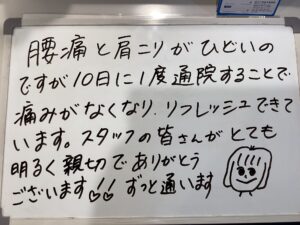 腰痛と肩こりがひどいの
ですが10日に1度通院することで
痛みがなくなり、リフレッシュできて
います。スタッフの皆さんがとても
明るく親切でありがとう
ございます♡♡ ずっと通います